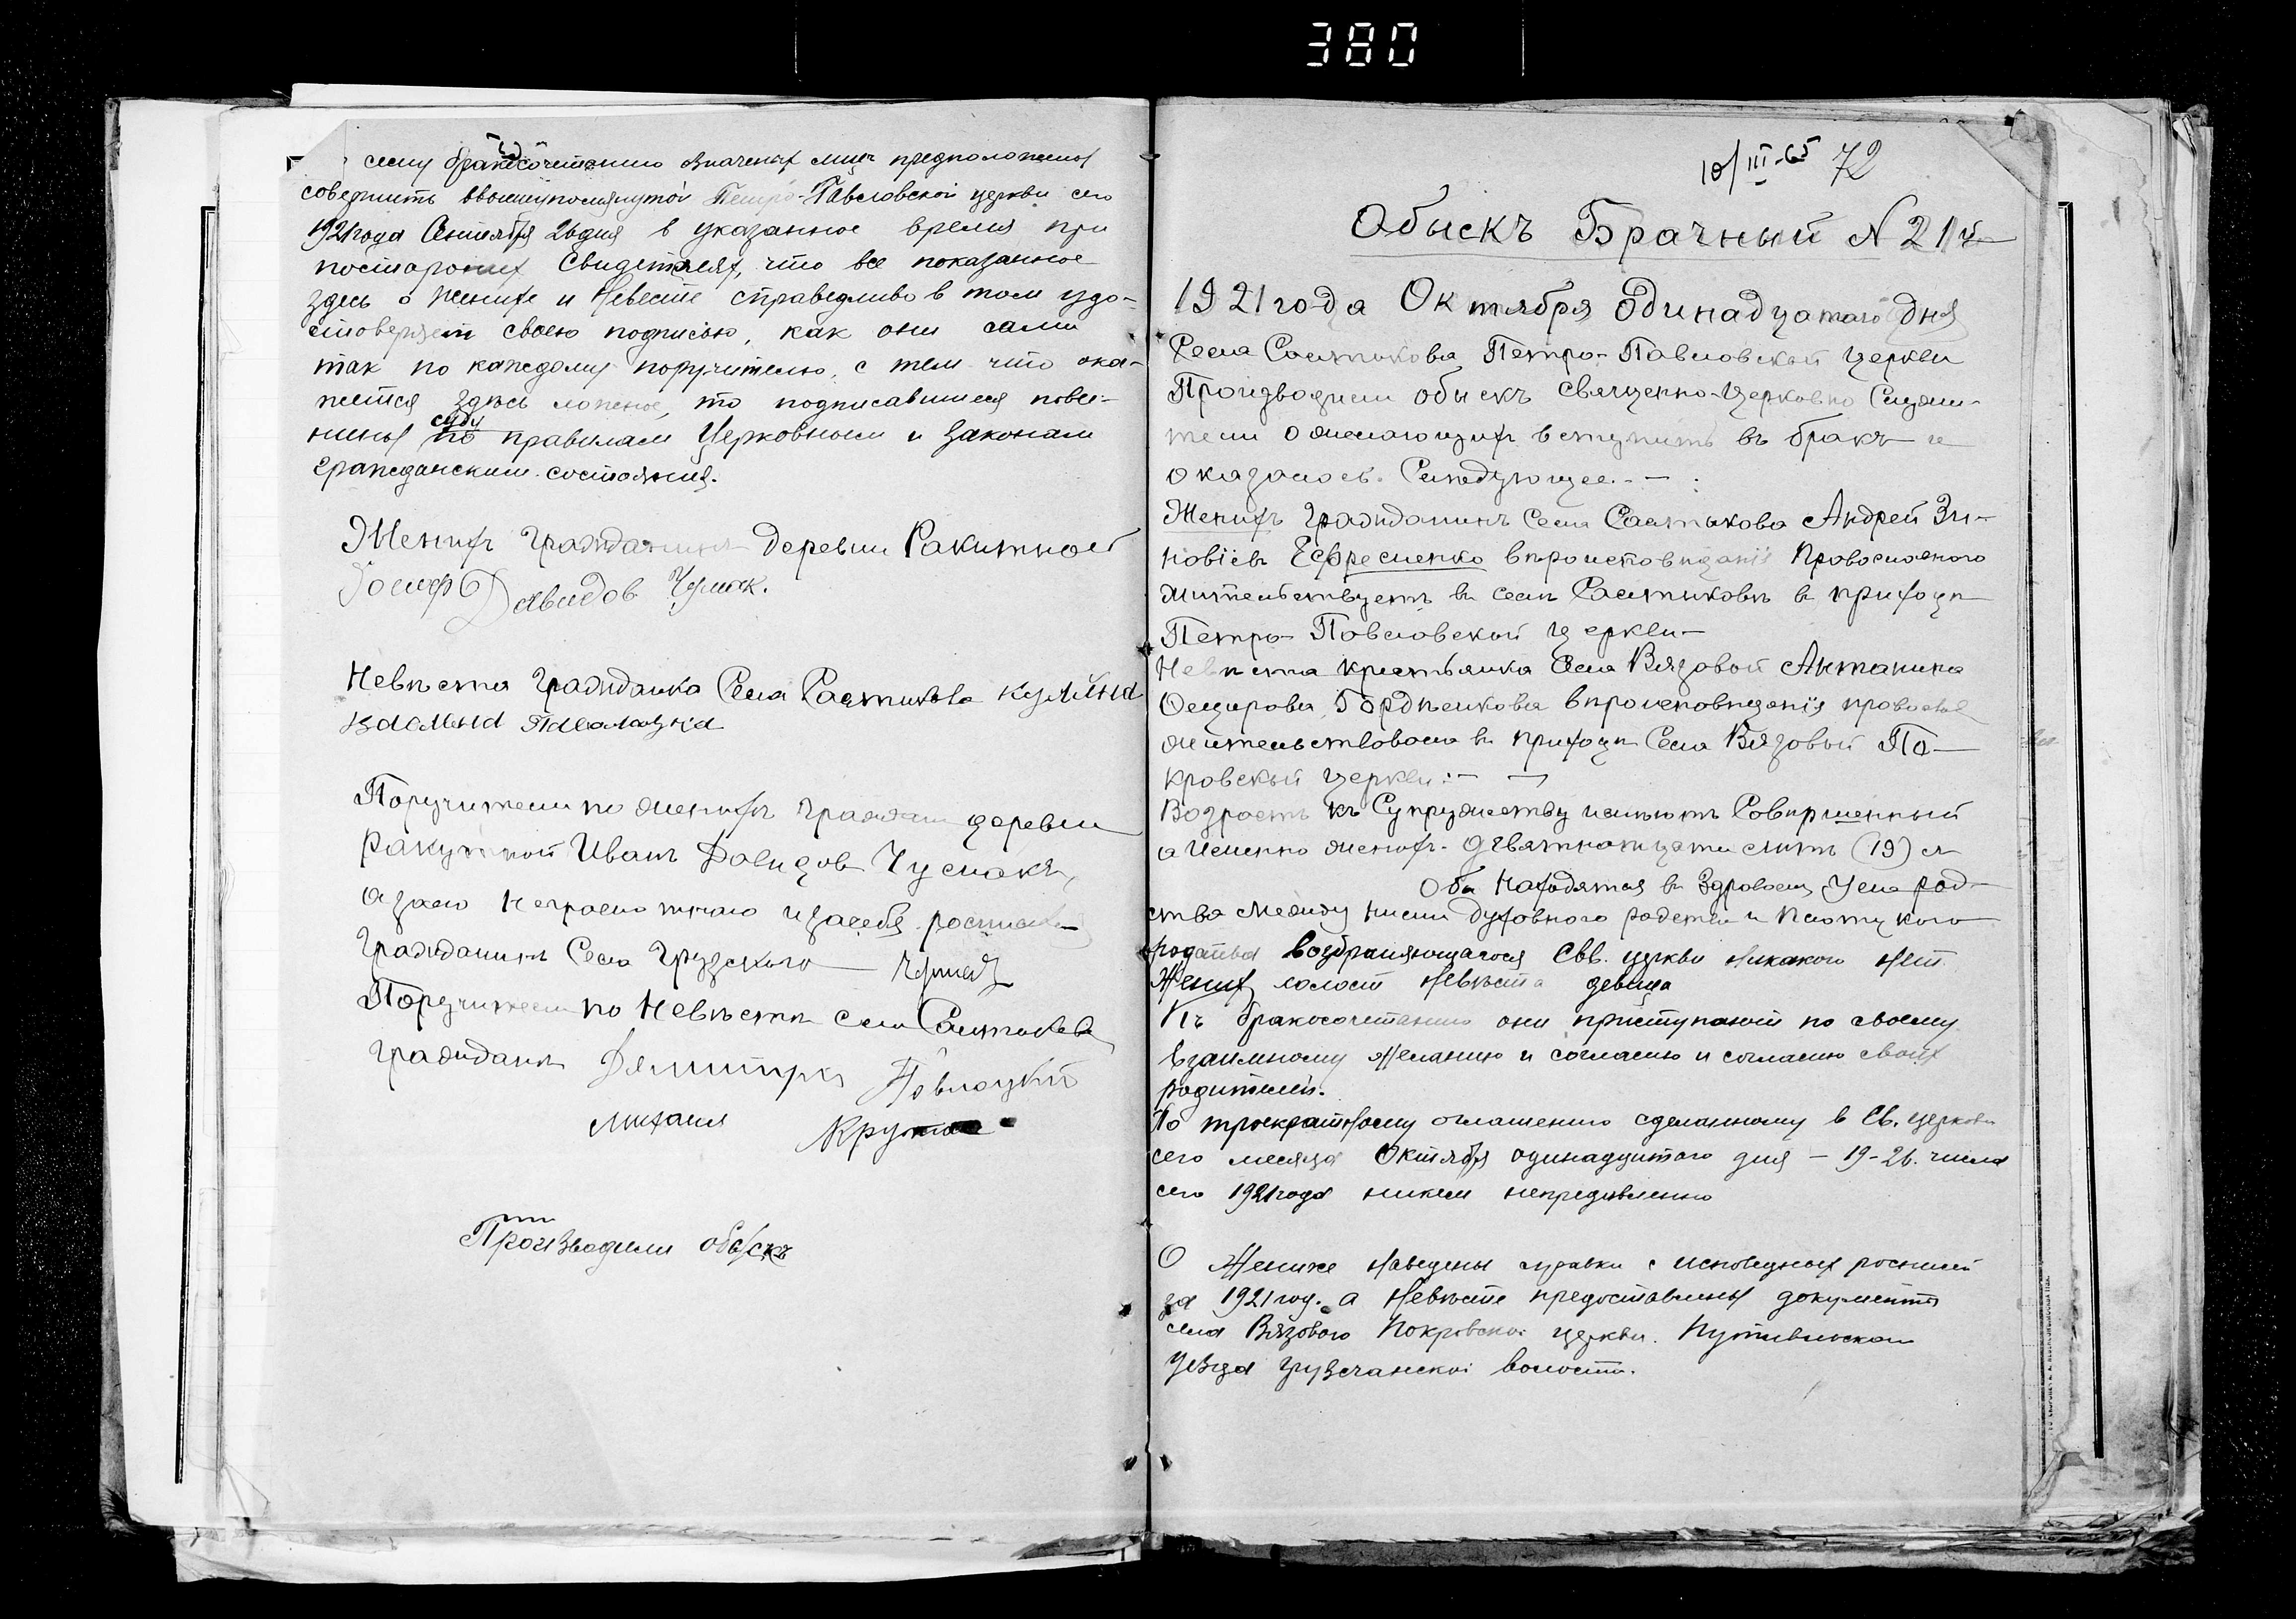 380
сему бракосочетанию означеных лицъ предположены
совершить ввышеупомянутой Петро-Павловской церкви сего
1921 года Сентября 26 дня в указанное время при
посторонних свидетелях, что все показанное
здесь о женихе и Невесте справедливо в том удо-
стоверяем своею подписью, как они сами
так по каждому поручителю, с тем что ока-
жется здесь ложное, то подписавшиеся пови-
нны суду
по правилам Церковным и законам
гражданским состояния.
Женихъ гражданинъ деревни Ракитной
Иосиф Давидов Чумак.
Невѣста Гражданка Села
Поручители по женихѣ граждани деревни
Ракутной Иванъ Давидов Чусмакъ,
Гражданинъ Села Грузскаго
Поручители по Невѣстѣ села
гражданѣ Димитри Павлоцкій
Михаил
Производили обыскъ
10/III-65 72
Обыскъ Брачный № 21й
1921 года Октября Одинадцатаго дня
Села Петро-Павловской Церкви
Производили обыскъ Священно-Церковно Служи-
тели о желающихъ вступить въ бракъ и
оказалось Слѣдующее. - :
Женихъ Гражданинъ Села Андрей Зи-
новіевъ Ефременко вѣроисповѣданія Православного
жительствуетъ въ селѣ въ приходѣ
Петро-Павловской Церкви-
Невѣста крестьянка Села Вязовой Антанина
Гордѣенкова вѣроисповѣданія правосла
жительствовала въ приходѣ Села Вязовый По-
кровской церкви:-
Возрастъ къ Супружеству имѣютъ Совершенный
а именно женихъ- девятнатцати лѣтъ (19) л
Оба находятся въ здравомъ Уме род-
ства между ними духовного и Плотцкого
родства возбраняющагося Свв. церкви никакого нет.
Жених холост Невѣста девица
Къ бракосочетанию они приступают по своему
взаимному желанию и согласию и согласию своих
родителей.
По троекратному оглашению сделанному в Св. церкви
сего месяца Октября одинадцатого дня - 19-26. числа
сего 1921 года никем
О Женихе наведены справки с исповедных росписей
за 1921 год. а Невѣсте предоставлены документы
села Вязового Покровской церкви. Путивльскаго
уезда Грузчанской волости.